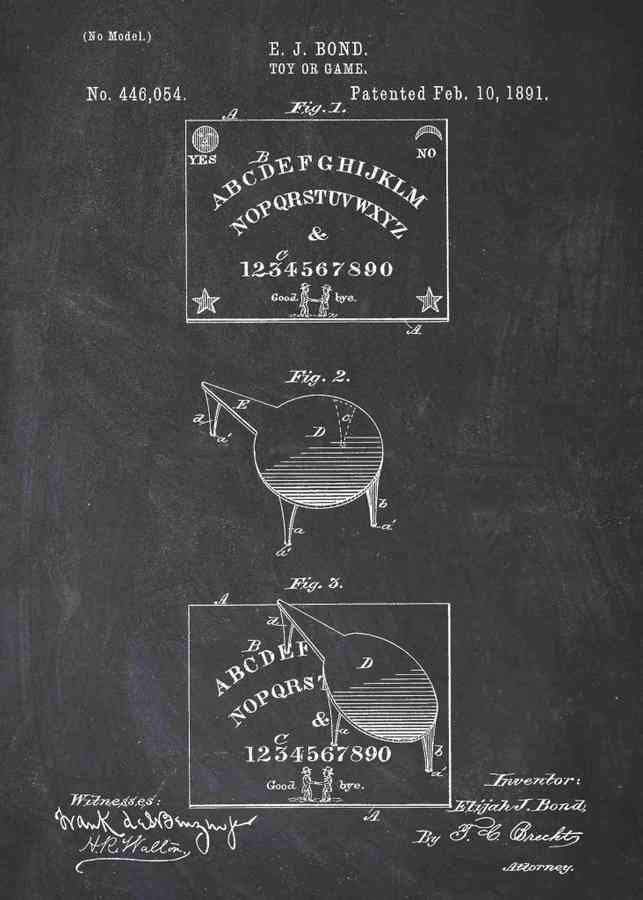 (No Model.)
E. J. BOND.
TOY OR GAME.
No. 446,054.
Patented Feb. 10, 1891.
Fig. 1.
A
YES
NO
B
ABCDEFGHIJKLM
NOPQRSTUVWXYZ
&
C
1234567890
Good bye.
A
Fig. 2.
E
D
c
d
a'
b
a'
a
a'
Fig. 3.
A
d
B
D
ABCDEF
NOPQRST
&
C
a
b
1234567890
a'
Good bye.
A
Witnesses:
Inventor:
Elijah J. Bond,
H. R. Walton,
By F. C. Brecht,
Attorney.